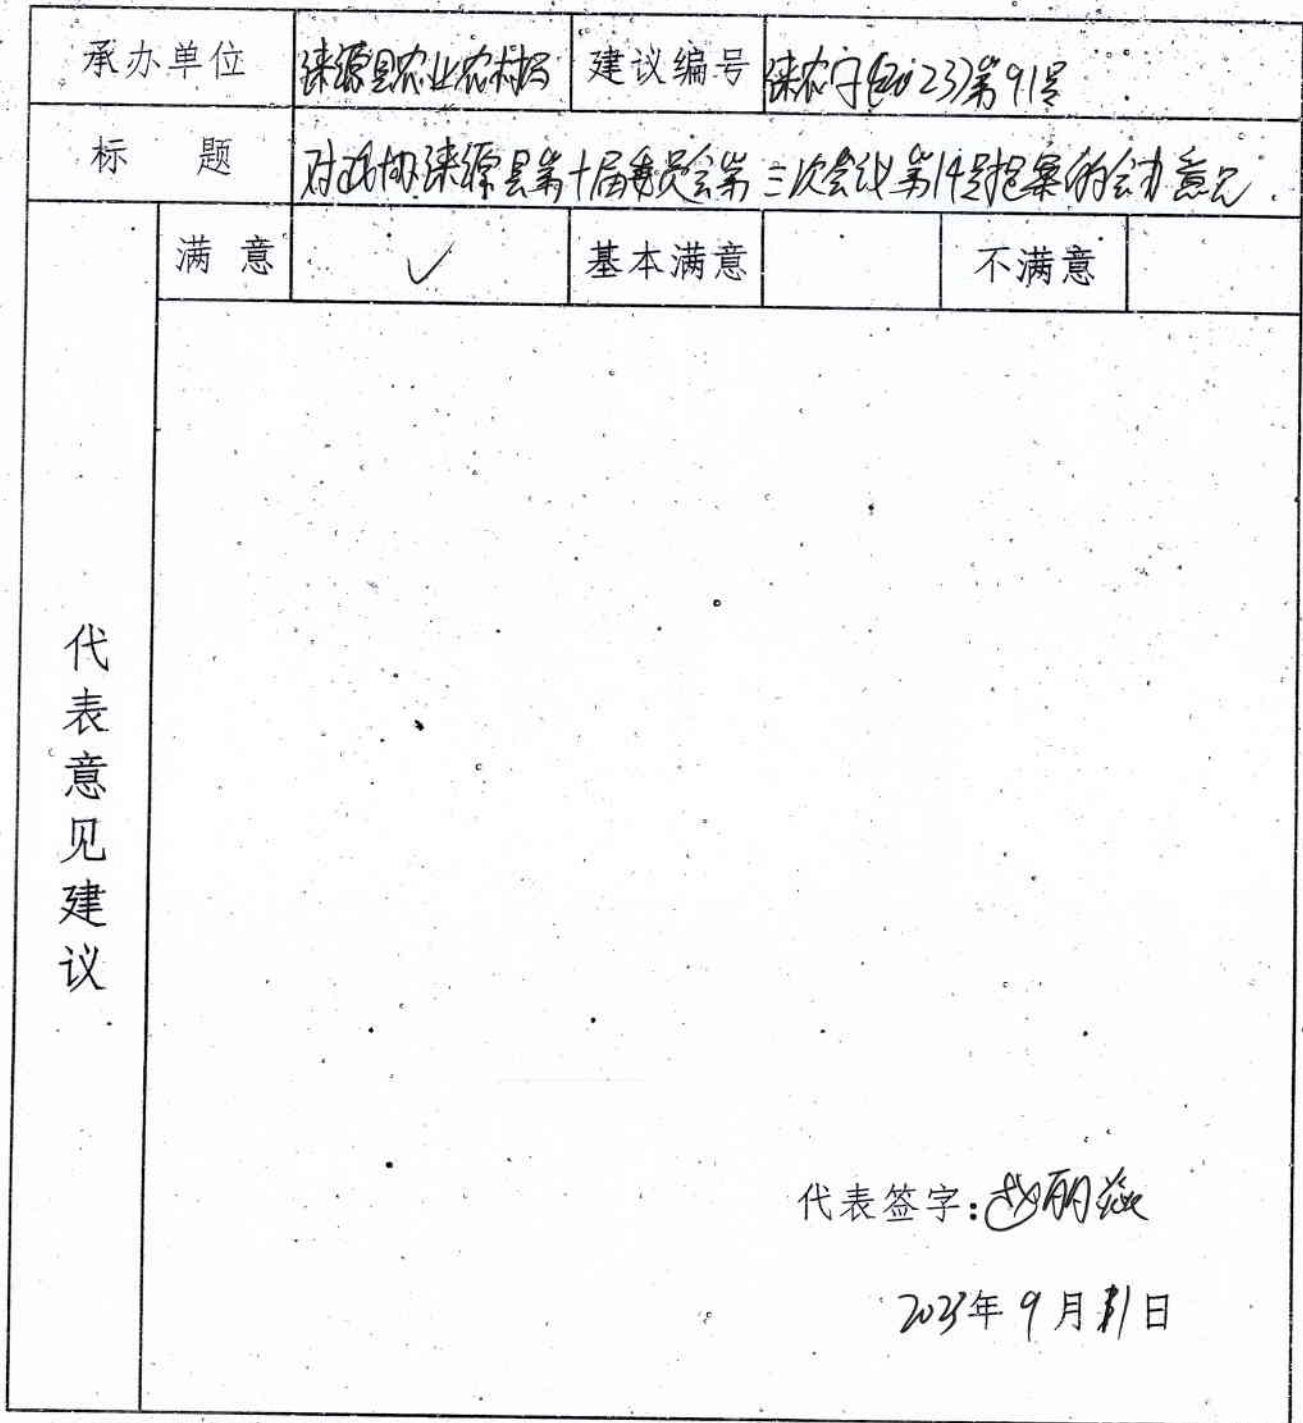 承办单位 涞源县农业农村局 建议编号 涞农字(2023)第91号
标 题 对政协涞源县第十届委员会第三次会议第14号提案的会办意见.
满 意 ✓ 基本满意 不满意
代表意见建议
代表签字:赵丽
2023年9月 日